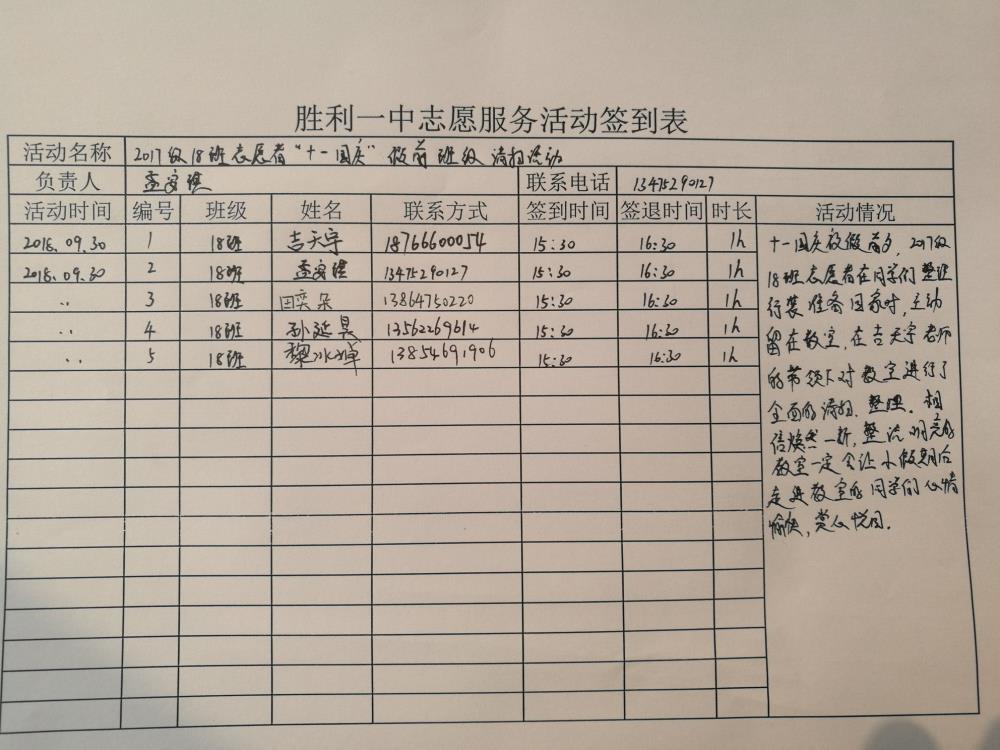 胜利一中志愿服务活动签到表
活动名称 2017级18班志愿者“十一国庆”假前班级清扫活动
负责人 联系电话 13475290127
活动时间 编号 班级 姓名 联系方式 签到时间 签退时间 时长 活动情况
2018.09.30 1 18班 吉天宇 18766600054 15:30 16:30 1h
2018.09.30 2 18班 13475290127 15:30 16:30 1h
〃 3 18班 田奕朵 13864750220 15:30 16:30 1h
〃 4 18班 孙延昊 13562269614 15:30 16:30 1h
〃 5 18班 魏冰倬 13854691906 15:30 16:30 1h
十一国庆放假前夕,2017级
18班志愿者在同学们整理
行装准备回家时,主动
留在教室,在吉天宇老师
的带领下对教室进行了
全面的清扫、整理。相
信焕然一新,整洁明亮的
教室一定会让小假期后
走进教室的同学们心情
愉快,赏心悦目.